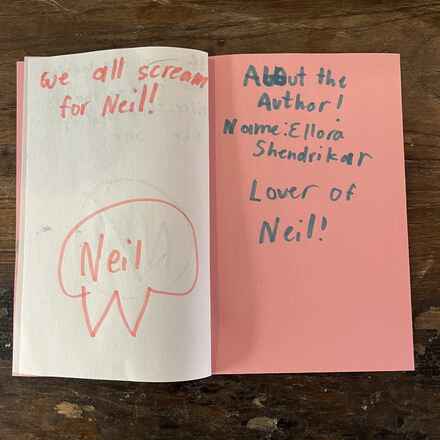 we all scream
for Neil!
Neil
About the
Author!
Name:Ellora
Shendrikar
Lover of
Neil!